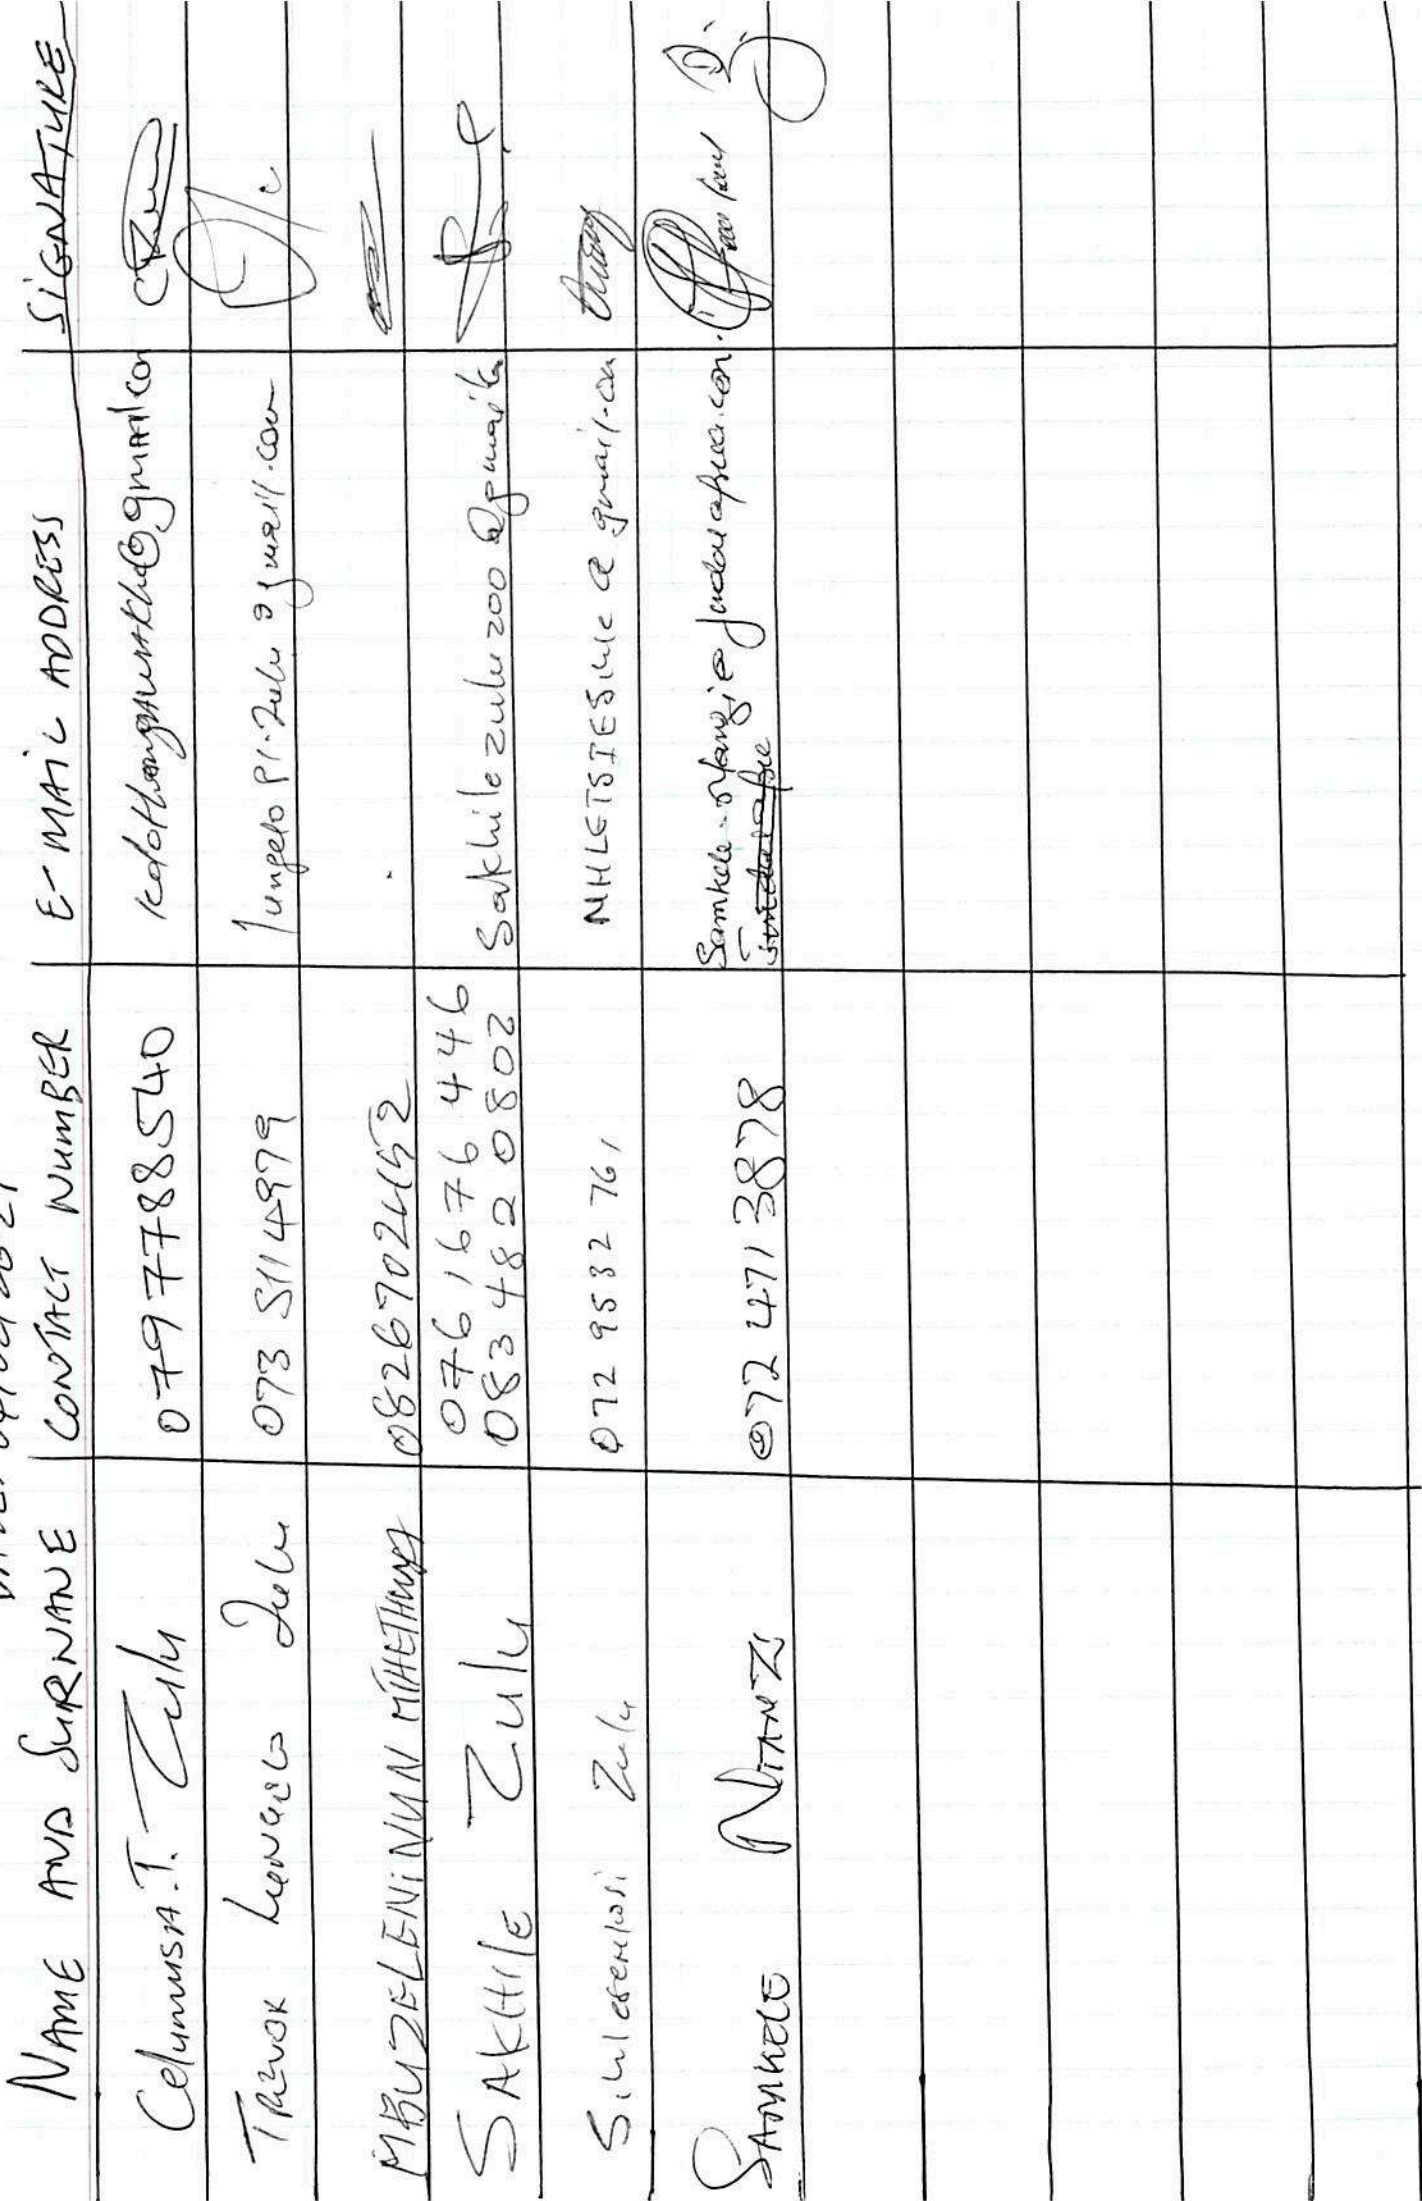 NAME AND SURNANE CONTACT NUMBER E-MAIL ADDRESS SIGNATURE
Celumusa.T. Zulu 0797778540 @gmail.com
TREVOR Lungelo Zulu 073 5114979 lungelo P1.Zulu @gmail.com
MBUZELENI NUN MTHETHWA 0826702452
SAKHILE Zulu 076 1676 446 Sakhilezulu200@gmail.
083 482 0802
Sihlesenkosi Zulu 072 9532 761 NHLETSIESihle@gmail.com
SAMKELE NTANZI 072 471 3878 Samkele.ntanzi@jindalafrica.com